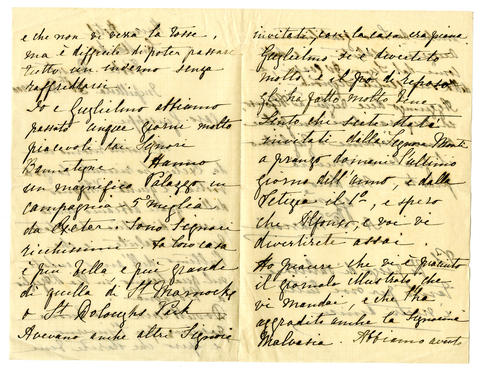 e che non vi verrà la tosse,
ma è difficile di poter passare
tutto un inverno senza
raffreddarsi.
Io e Guglielmo abbiamo
passato cinque giorni molto
piacevoli dai Signori
Bannatyne. Hanno
un magnifico Palazzo in
campagna 5 miglia
da Exeter. Sono Signori
ricchissimi. La loro casa
è più bella e più grande
di quella di St Marnocks
o St Doloughs Park
Avevano anche altri Signori
invitati, così la casa era piena.
Guglielmo si è divertito
molto, e il po' di riposo
gli ha fatto molto bene.
Sento che siete stati
invitati dalla Signora Monti
a pranzo domani l'ultimo
giorno dell'anno, e dalla
il 1º, e spero
che Alfonso, e voi vi
divertirete assai.
Ho piacere che vi è piaciuto
il giornale illustrato che
vi mandai, e che l'ha
aggradito anche la Signorina
Malvasia. Abbiamo avuto